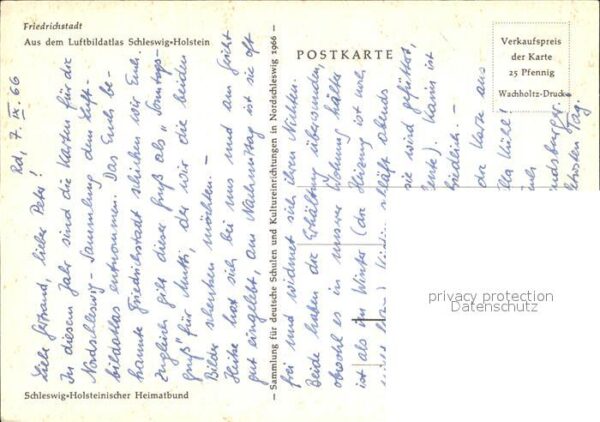 Friedrichstadt
Aus dem Luftbildatlas Schleswig-Holstein
POSTKARTE
Verkaufspreis
der Karte
25 Pfennig
Wachholtz-Drucke
Rd, 7. IX. 66
Liebe Gertraud, lieber Peter!
In diesem Jahr sind die Karten für die
Nordschleswig-Sammlung dem Luft-
bildatlas entnommen. Das Euch be-
kannte Friedrichstadt schicken wir Euch.
Zugleich gilt dieser Gruß als „Sonntags-
gruß" für Mutti, der wir die beiden
Bilder schenken möchten. –
Heike hat sich bei uns und am
gut eingelebt, am Nachmittag ist sie oft
frei und widmet sich ihren Nichten.
Beide haben die Erkältung überwunden,
obwohl es in unserer Wohnung kälter
ist als im Winter (da Heizung ist noch
schläft abends
sie wird gefüttert,
Karin ist
friedlich. –
der Karte aus
Kühl!
Tag.
– Sammlung für deutsche Schulen und Kultureinrichtungen in Nordschleswig 1966 –
Schleswig-Holsteinischer Heimatbund
privacy protection
Datenschutz